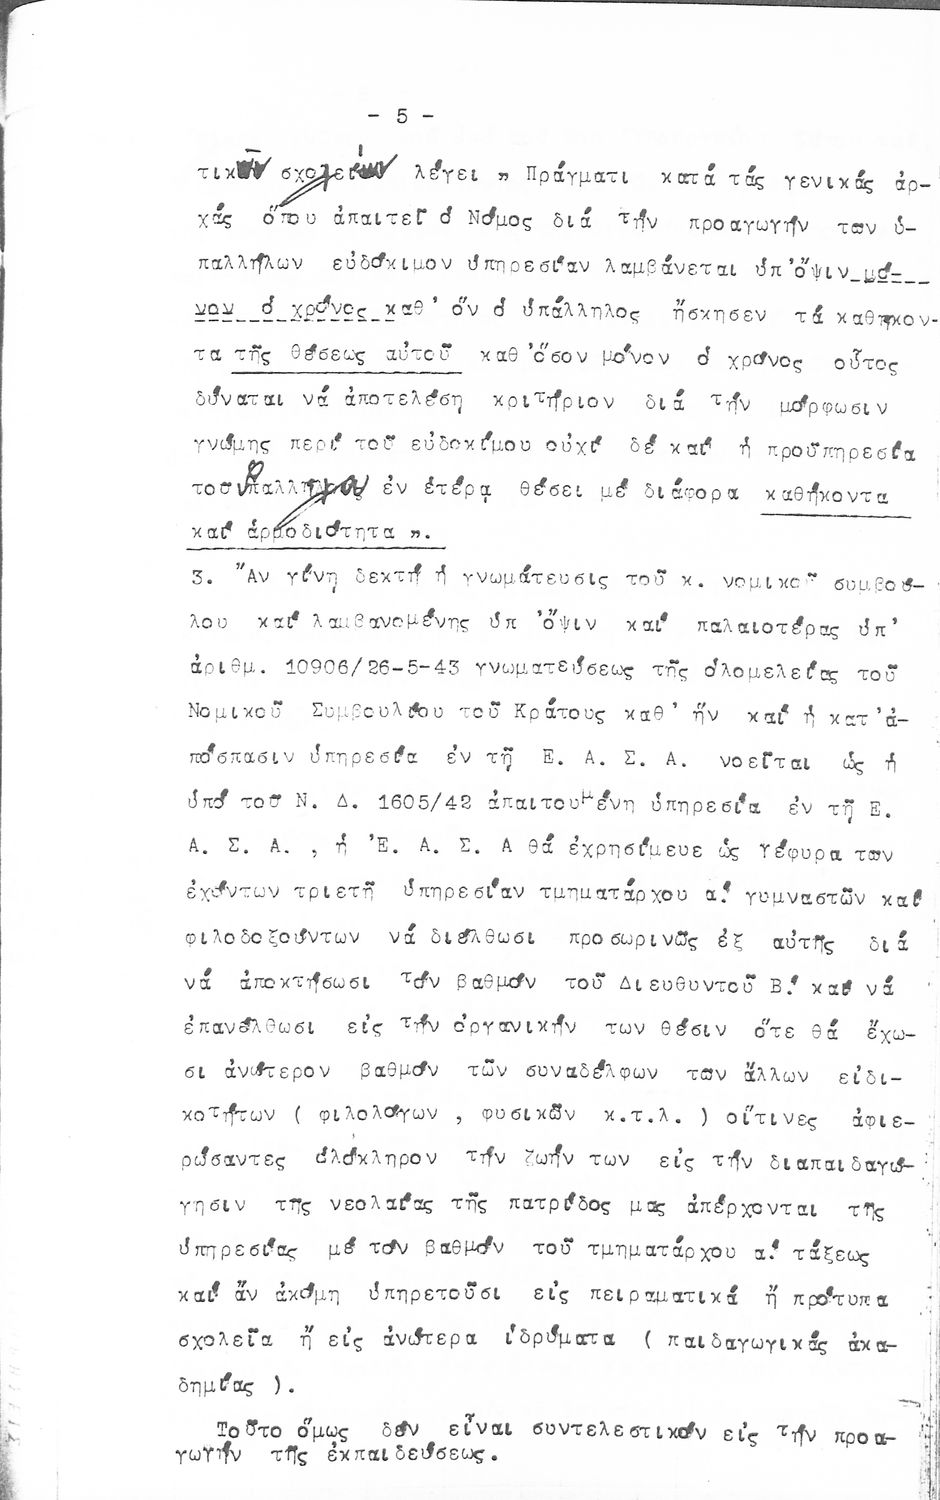 - 5 -
τικῶν σχολείων λέγει " Πράγματι κατά τάς γενικάς ἀρ-
χάς ὅπου ἀπαιτεῖ ὁ Νόμος διά τήν προαγωγήν των ὑ-
παλλήλων εὐδόκιμον ὑπηρεσίαν λαμβάνεται ὑπ'ὄψιν μό-
νον ὁ χρόνος καθ' ὅν ὁ ὑπάλληλος ἤσκησεν τά καθηκον-
τα τῆς θέσεως αὐτοῦ καθ'ὅσον μόνον ὁ χρόνος οὗτος
δύναται νά ἀποτελέση κριτήριον διά τήν μόρφωσιν
γνώμης περί τοῦ εὐδοκίμου οὐχί δέ καί ἡ προϋπηρεσία
ἐν ἑτέρᾳ θέσει μέ διάφορα καθήκοντα
καί ἁρμοδιότητα ".
3. "Αν γίνη δεκτή ἡ γνωμάτευσις τοῦ κ. νομικοῦ συμβού-
λου καί λαμβανομένης ὑπ 'ὄψιν καί παλαιοτέρας ὑπ'
ἀριθμ. 10906/26-5-43 γνωματεύσεως τῆς ὁλομελείας τοῦ
Νομικοῦ Συμβουλίου τοῦ Κράτους καθ' ἥν καί ἡ κατ'ἀ-
πόσπασιν ὑπηρεσία ἐν τῇ Ε. Α. Σ. Α. νοεῖται ὡς ἡ
ὑπό τοῦ Ν. Δ. 1605/42 ἀπαιτουμένη ὑπηρεσία ἐν τῇ Ε.
Α. Σ. Α. , ἡ 'Ε. Α. Σ. Α θά ἐχρησίμευε ὡς γέφυρα των
ἐχόντων τριετῆ ὑπηρεσίαν τμηματάρχου α.' γυμναστῶν καί
φιλοδοξούντων νά διέλθωσι προσωρινῶς ἐξ αὐτῆς διά
νά ἀποκτήσωσι τόν βαθμόν τοῦ Διευθυντοῦ Β.' καί νά
ἐπανέλθωσι εἰς τήν ὀργανικήν των θέσιν ὅτε θά ἔχω-
σι ἀνώτερον βαθμόν τῶν συναδέλφων των ἄλλων εἰδι-
κοτήτων ( φιλολόγων , φυσικῶν κ.τ.λ. ) οἵτινες ἀφιε-
ρώσαντες ὁλόκληρον τήν ζωήν των εἰς τήν διαπαιδαγώ-
γησιν τῆς νεολαίας τῆς πατρίδος μας ἀπέρχονται τῆς
ὑπηρεσίας μέ τόν βαθμόν τοῦ τμηματάρχου α.' τάξεως
καί ἄν ἀκόμη ὑπηρετοῦσι εἰς πειραματικά ἤ πρότυπα
σχολεῖα ἤ εἰς ἀνώτερα ἱδρύματα ( παιδαγωγικάς ἀκα-
δημίας ).
Τοῦτο ὅμως δέν εἶναι συντελεστικόν εἰς τήν προα-
γωγήν τῆς ἐκπαιδεύσεως.